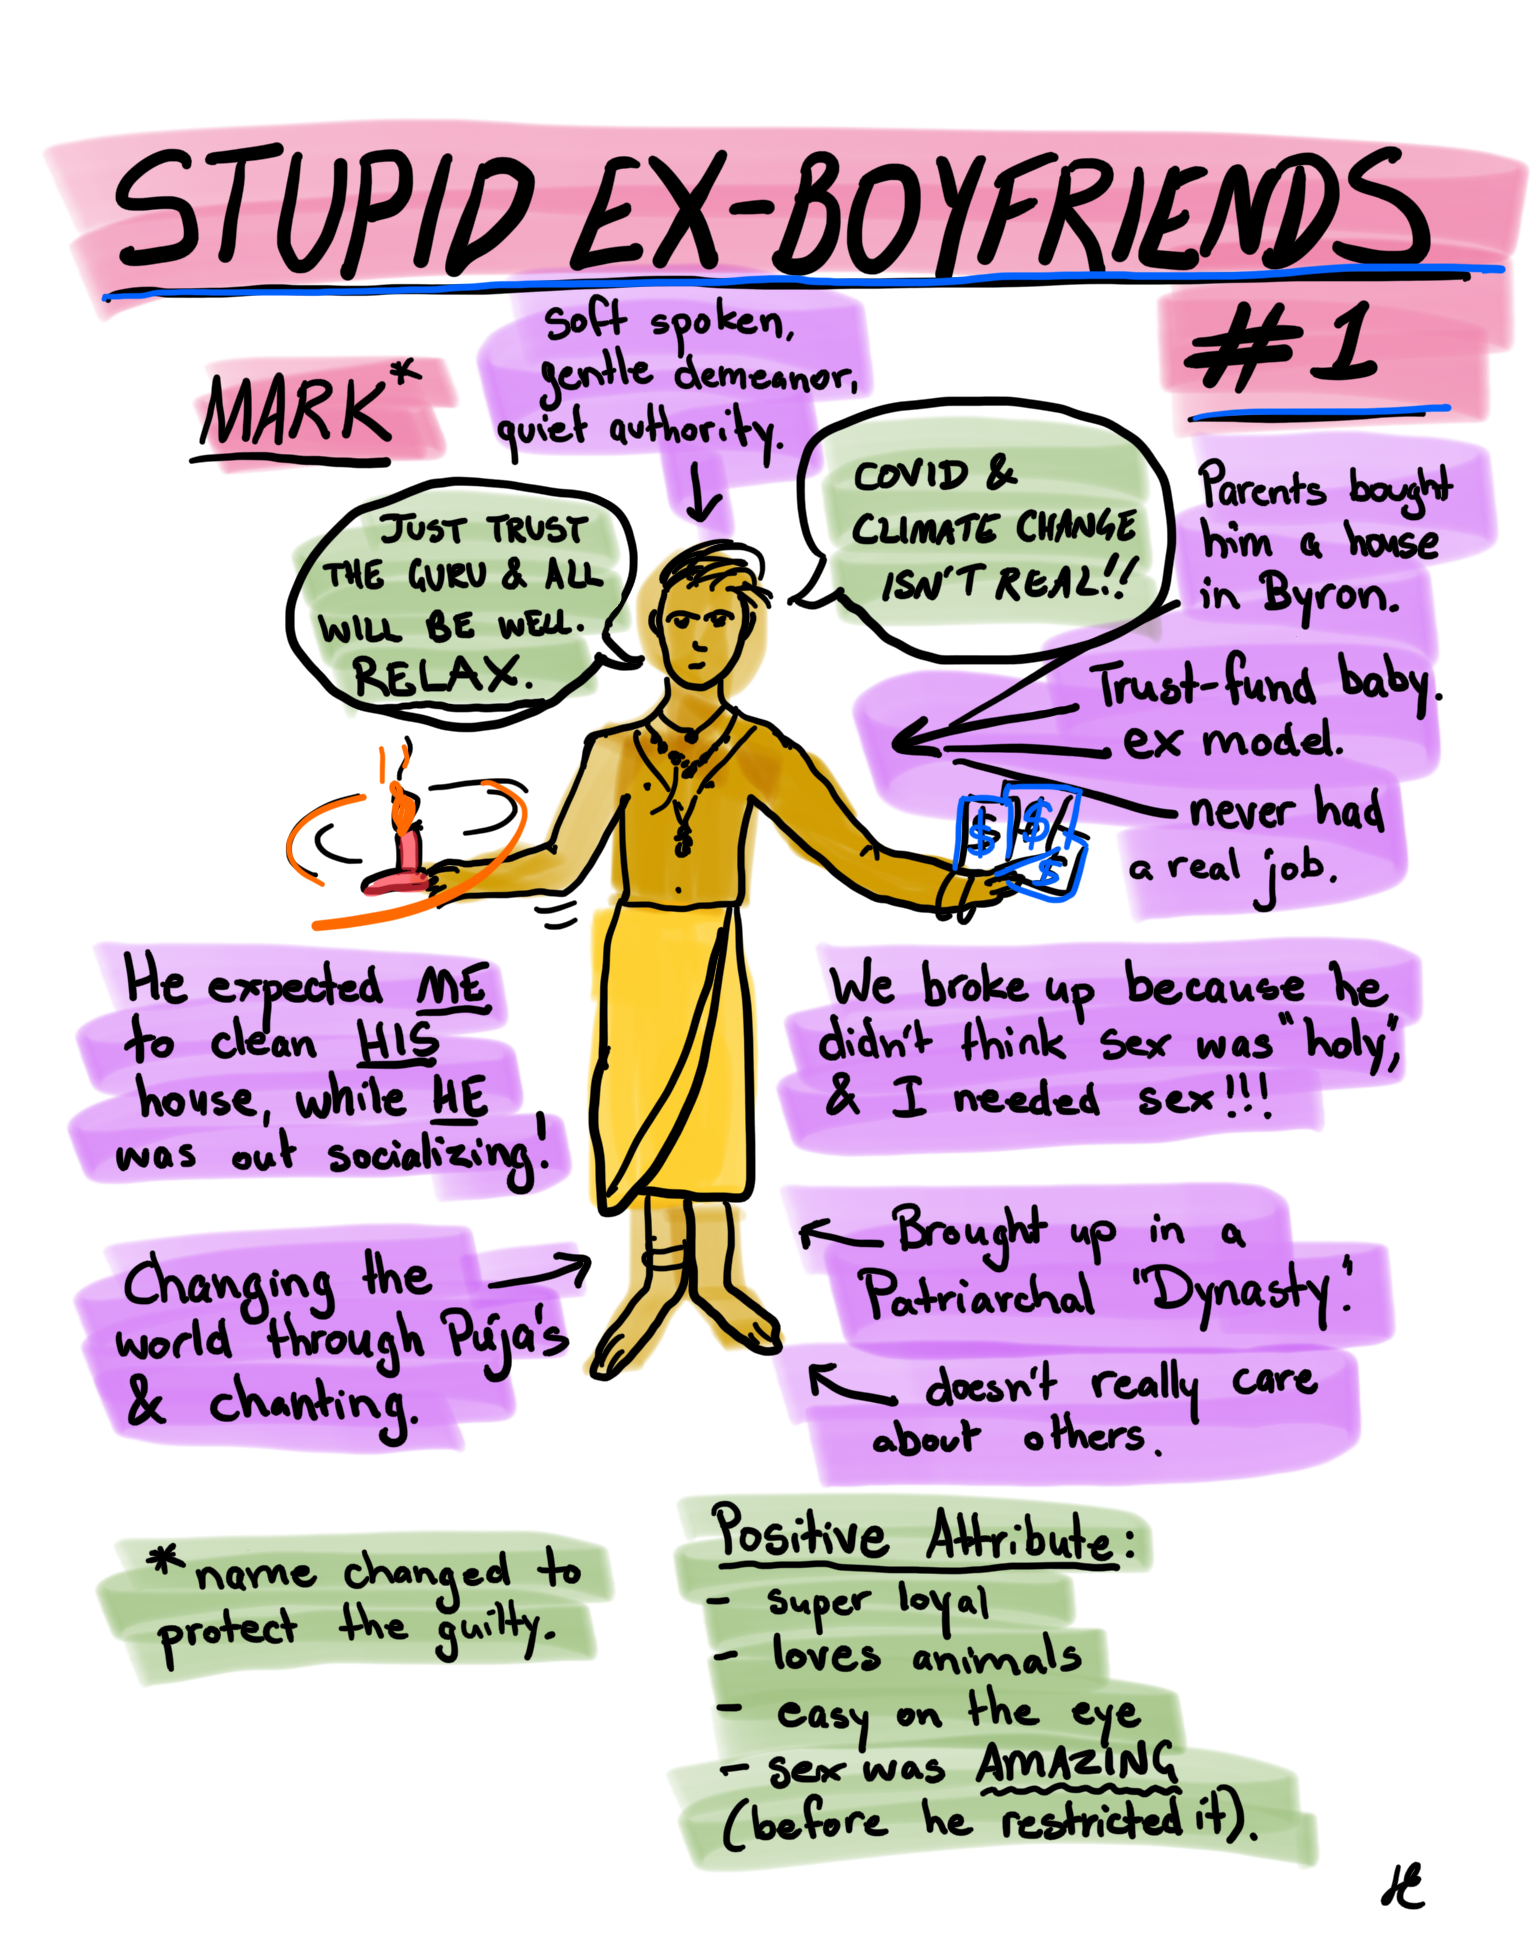 STUPID EX-BOYFRIENDS
#1
MARK*
Soft spoken,
gentle demeanor,
quiet authority.
JUST TRUST
THE GURU & ALL
WILL BE WELL.
RELAX.
COVID &
CLIMATE CHANGE
ISN'T REAL!!
Parents bought
him a house
in Byron.
Trust-fund baby.
ex model.
never had
a real job.
$ $ $
He expected ME
to clean HIS
house, while HE
was out socializing!
We broke up because he
didn't think sex was "holy",
& I needed sex!!!
Changing the
world through Puja's
& chanting.
Brought up in a
Patriarchal 'Dynasty'.
doesn't really care
about others.
*name changed to
protect the guilty.
Positive Attribute:
- super loyal
- loves animals
- easy on the eye
- sex was AMAZING
(before he restricted it).